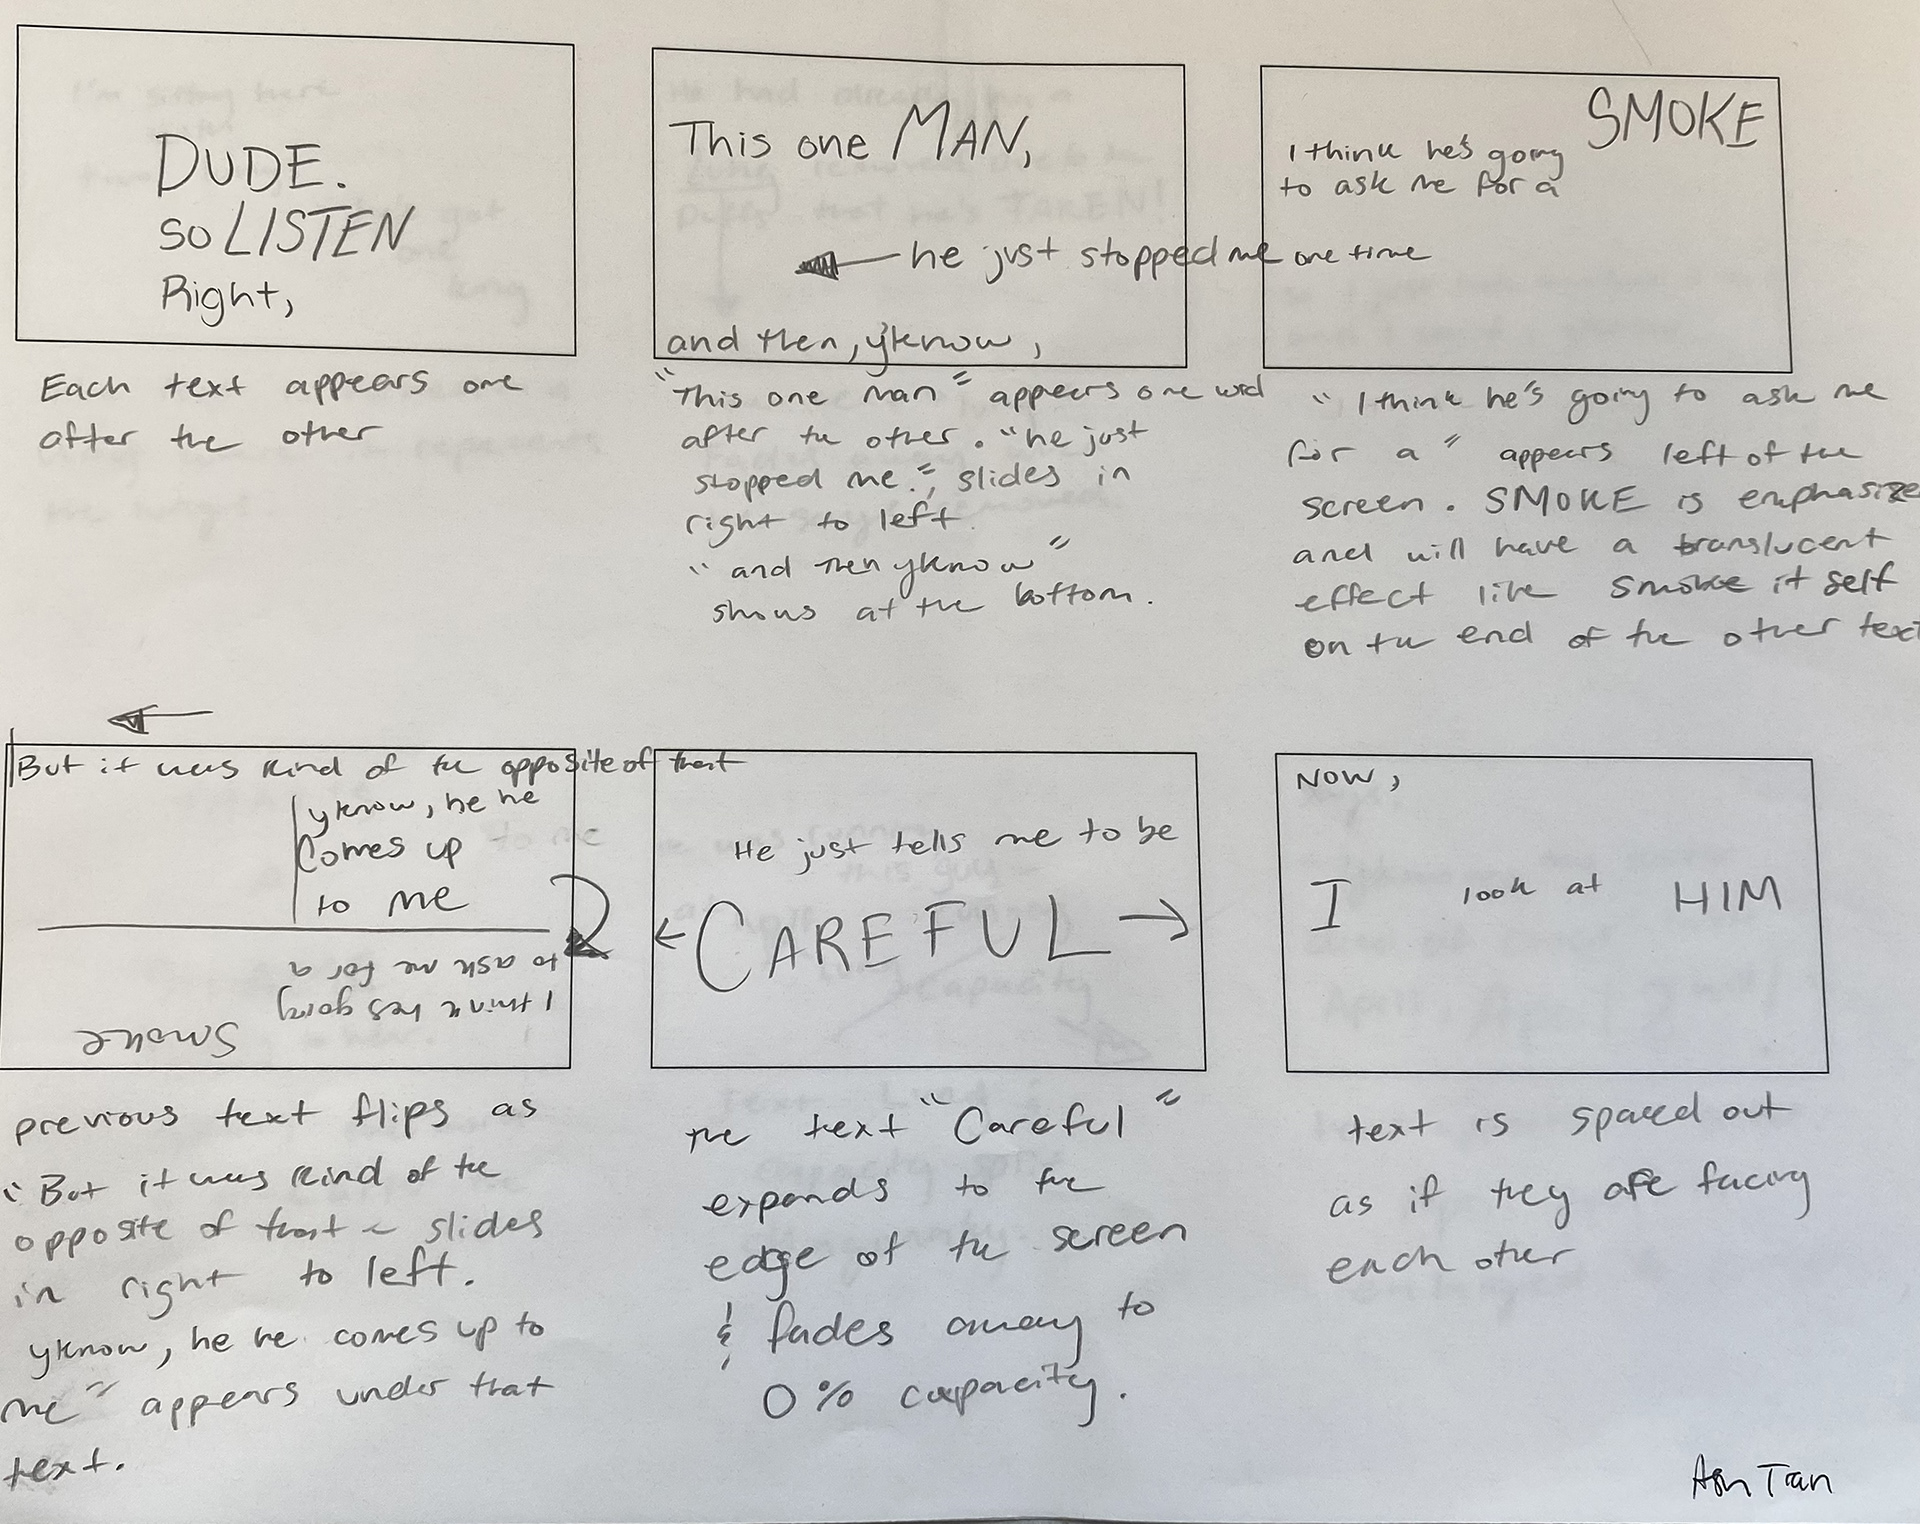 DUDE.
so LISTEN
Right,
Each text appears one
after the other
This one MAN,
he just stopped me one time
and then, y'know,
"This one man" appears one word
after the other. "he just
stopped me", slides in
right to left
"and then yknow"
shows at the bottom.
SMOKE
I think he's going
to ask me for a
"I think he's going to ask me
for a" appears left of the
screen. SMOKE is emphasize
and will have a translucent
effect like smoke it self
on the end of the other text
But it was kind of the opposite of that
yknow, he he
comes up
to me
to ask me for a
I think he's going
Smoke
previous text flips as
"But it was kind of the
opposite of that" slides
in right to left.
yknow, he he comes up to
me" appears under that
text.
He just tells me to be
CAREFUL
the text "Careful"
expands to the
edge of the screen
& fades away to
0% capacity.
NOW,
I look at HIM
text is spaced out
as if they are facing
each other
Ash Tran